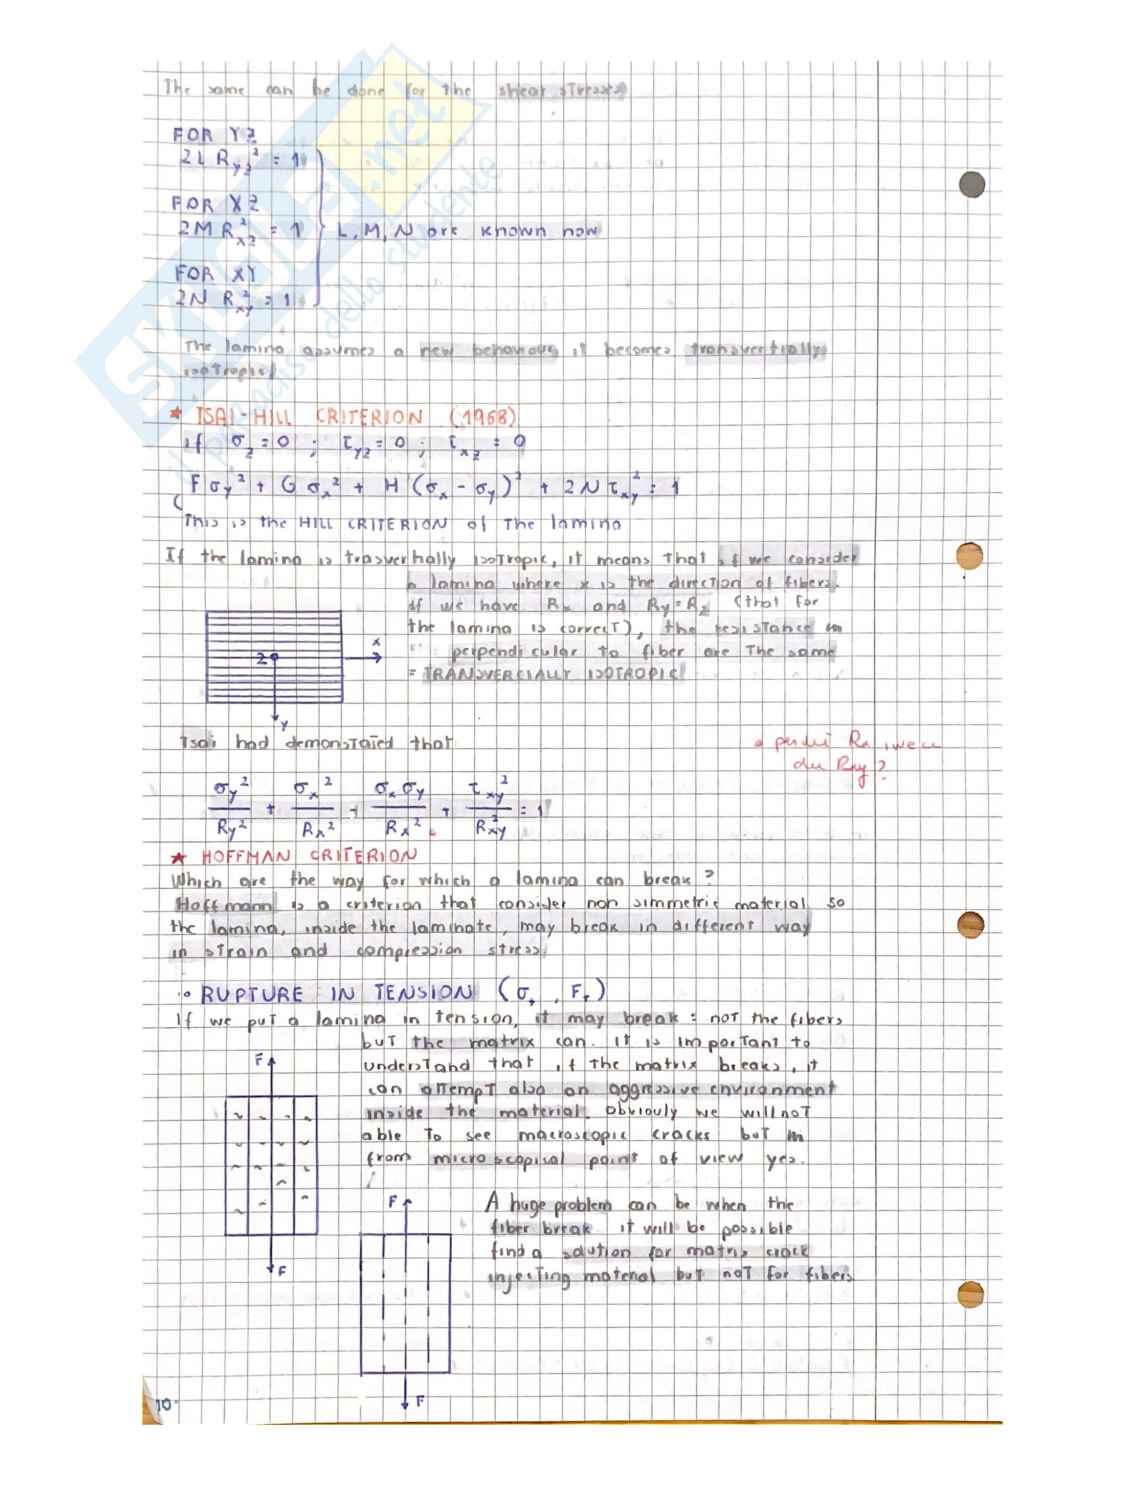 The same can be done for the shear stresses
FOR YZ
2L R_yz² = 1
FOR XZ
2M R_xz² = 1
L, M, N are known now
FOR XY
2N R_xy² = 1
The lamina assumes a new behaviour, it becomes transvertially
isotropic!
★ TSAI-HILL CRITERION (1968)
if σ_z = 0 ; τ_yz = 0 ; τ_xz = 0
F σ_y² + G σ_x² + H (σ_x - σ_y)² + 2N τ_xy² = 1
This is the HILL CRITERION of the lamina
If the lamina is trasverhally isotropic, it means that if we consider
a lamina where x is the direction of fibers.
If we have Rx and Ry=Rz (that for
the lamina is correct), the resistance in
perpendicular to fiber are the same
= TRANSVERCIALLY ISOTROPIC
x
z
y
Tsai had demonstated that
Rx
du Rxy?
σ_y²/Ry² + σ_x²/Rx² - σ_x σ_y/Rx² + τ_xy²/R_xy² = 1
★ HOFFMAN CRITERION
Which are the way for which a lamina can break?
Hoffmann is a criterion that consider non simmetric material so
the lamina, inside the laminate, may break in different way
in strain and compression stress.
• RUPTURE IN TENSION (σ_t , F_t)
If we put a lamina in tension, it may break: not the fibers
but the matrix can. It is important to
understand that if the matrix breaks, it
can attempt also an aggressive environment
inside the material. obviouly we will not
able to see macroscopic cracks but in
from microscopical point of view yes.
F
F
A huge problem can be when the
fiber break it will be possible
find a solution for matrix crack
injecting material but not for fibers
F
F
10
SKUOLA.net
il paradiso dello studente